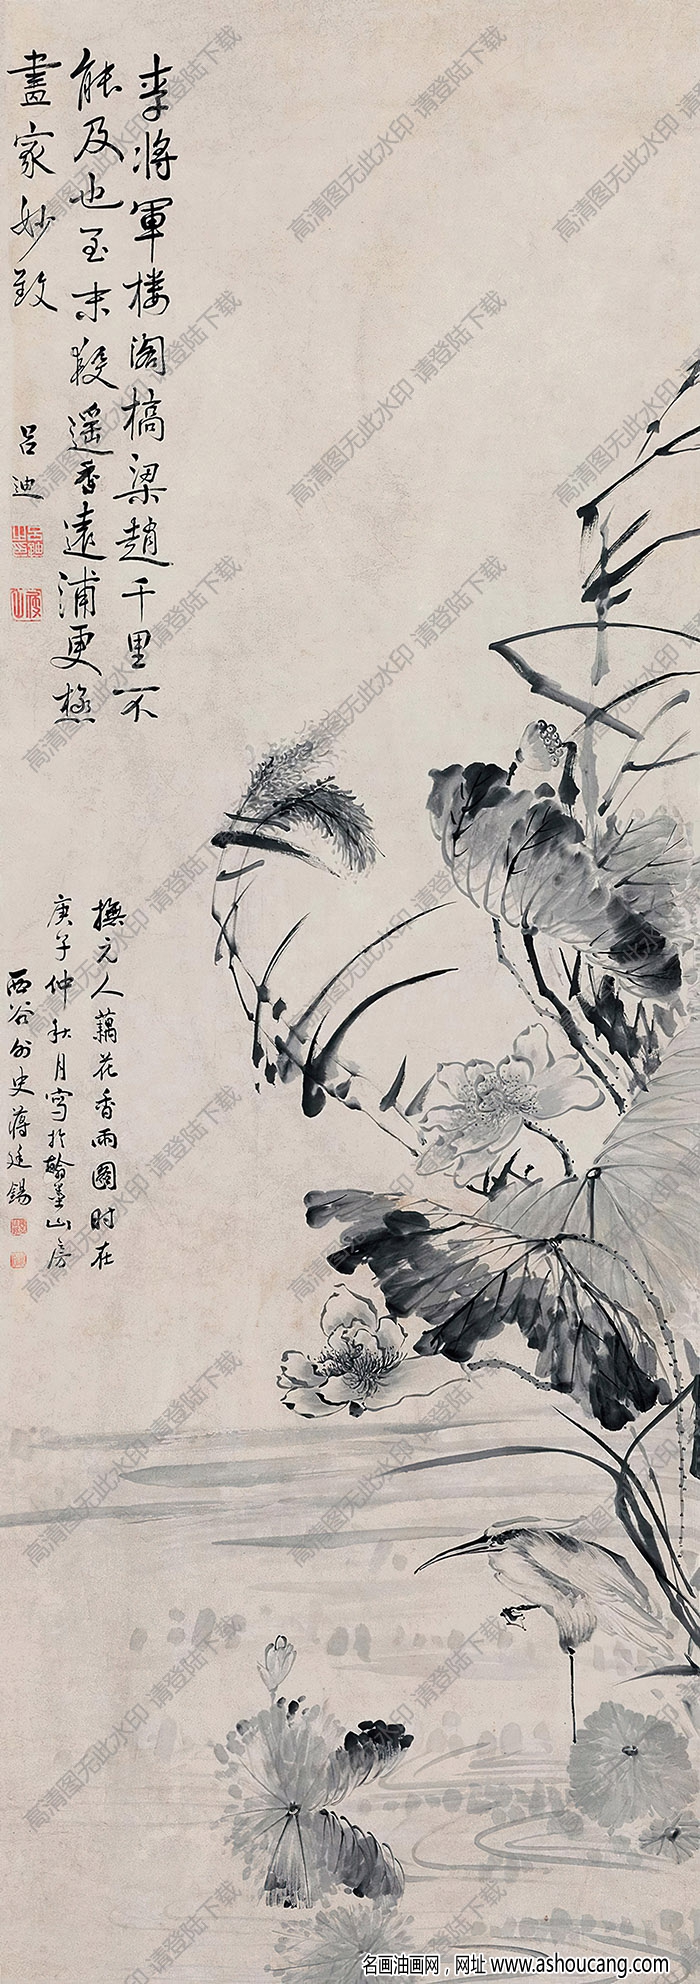 李将軍楼阁槁梁趙千里不
能及也至末段遥香遠浦更極
畫家妙致
吕迪
撫元人藕花香雨圖时在
庚子仲秋月写於翰墨山房
西谷外史蒋廷锡
高清图无此水印 请登陆下载
名画油画网，网址 www.ashoucang.com